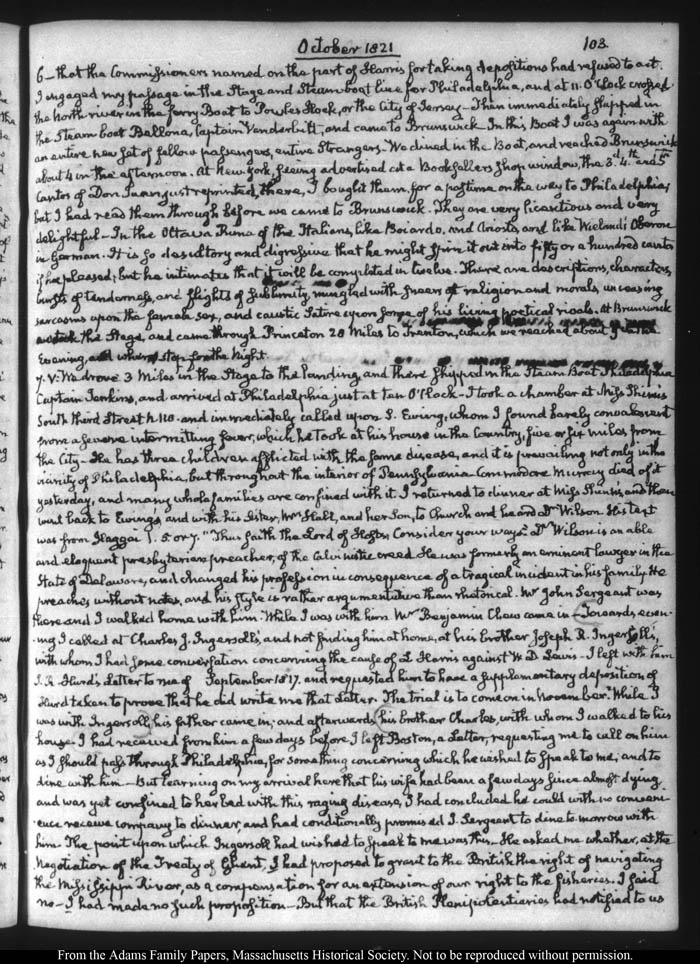 October 1821
103.
6 — that the Commissioners named on the part of Harris for taking depositions had refused to act.
I engaged my passage in the Stage and Steam-boat line for Philadelphia, and at 11. O'Clock crossed
the North river in the ferry Boat to Powles Hook, or the City of Jersey — Then immediately shipped in
the Steam boat Bellona, Captain Vanderbilt, and came to Brunswick. In this Boat I was again with
an entire new set of fellow passengers, entire Strangers. We dined in the Boat, and reached Brunswick
about 4 in the afternoon. At New York, seeing advertised at a Booksellers shop window, the 3d. 4th. and 5th
Cantos of Don Juan, just reprinted, there, I bought them, for a pastime on the way to Philadelphia;
but I had read them through before we came to Brunswick. They are very licentious and very
delightful — In the Ottava Rima of the Italians, like Bocardo, and Ariosto, and like Wieland's Oberon
in German. It is so desultory and digressive that he might spin it out into fifty or a hundred cantos
if he pleased; but he intimates that it will be completed in twelve. There are descriptions, characters,
bursts of tenderness, and flights of sublimity, mingled with sneers at religion and morals, unceasing
sarcasms upon the female sex, and caustic Satire upon some of his living poetical rivals. At Brunswick
the Stage, and came through Princeton 28 Miles to Trenton, which we reached about
Evening, and where stop for the Night.
7. V: We drove 3 Miles in the Stage to the landing, and there shipped in the Steam Boat Philadelphia
Captain Jenkins, and arrived at Philadelphia just at ten O'Clock. I took a chamber at Miss
South third Street N. 110. and immediately called upon S. Ewing, whom I found barely convalescent
from a severe intermitting fever, which he took at his house in the Country, five or six miles from
the City — He has three children afflicted with the same disease, and it is prevailing not only in the
vicinity of Philadelphia, but throughout the interior of Pennsylvania. Commodore Murray died of it
yesterday, and many whole families are confined with it. I returned to dinner at Miss and then
went back to Ewing's, and with his Sister, Mrs Hall, and her Son, to Church and heard Dr Wilson. His text
was from Haggai 1. 5 or 7. "Thus saith the Lord of Hosts; Consider your ways." Dr Wilson is an able
and eloquent presbyterian preacher, of the Calvinistic creed. He was formerly an eminent lawyer in the
State of Delaware, and changed his profession in consequence of a tragical incident in his family. He
preaches without notes, and his style is rather argumentative than rhetorical. Mr John Sergeant was
there and I walked home with him. While I was with him Mr Benjamin Chew came in — Towards even-
ing I called at Charles J. Ingersoll's, and not finding him at home, at his brother Joseph R. Ingersoll's,
with whom I had some conversation concerning the cause of L. Harris against W. D. Lewis — I left with him
I. R. Hurd's Letter to me of September 1817. and requested him to have a supplementary deposition of
Hurd taken to prove that he did write me that Letter. The trial is to come on in November. While I
was with Ingersoll, his father came in; and afterwards his brother Charles, with whom I walked to his
house. I had received from him a few days before I left Boston, a Letter, requesting me to call on him
as I should pass through Philadelphia, for something concerning which he wished to speak to me, and to
dine with him — But learning on my arrival here that his wife had been a few days since almost dying
and was yet confined to her bed with this raging disease, I had concluded he could with no conveni-
ence receive company to dinner, and had conditionally promised J. Sergeant to dine to morrow with
him. The point upon which Ingersoll had wished to speak to me was this — He asked me whether, at the
Negotiation of the Treaty of Ghent, I had proposed to grant to the British the right of navigating
the Mississippi River, as a compensation for an extension of our right to the fisheries. I said
no — I had made no such proposition — But that the British Plenipotentiaries had notified to us
From the Adams Family Papers, Massachusetts Historical Society. Not to be reproduced without permission.